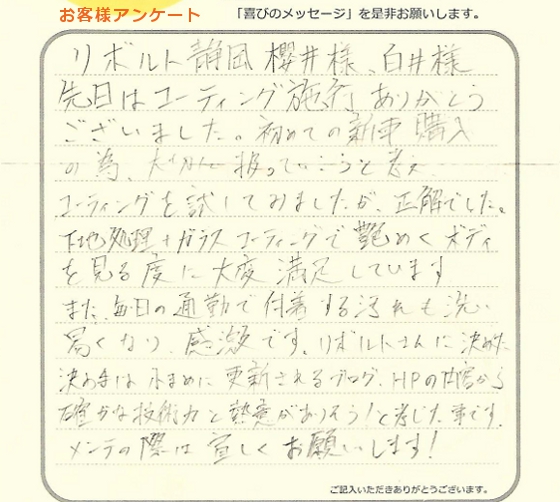 お客様アンケート 「喜びのメッセージ」を是非お願いします。
リボルト静岡 櫻井様、白井様
先日はコーティング施行ありがとう
ございました。初めての新車購入
の為、大切に扱っていこうと考え
コーティングを試してみましたが、正解でした。
下地処理+ガラスコーティングで艶めくボディ
を見る度に大変満足しています
また、毎日の通勤で付着する汚れも洗い
易くなり、感激です。リボルトさんに決めた
決め手は小まめに更新されるブログ、HPの内容から
確かな技術力と熱意がありそう!と感じた事です。
メンテの際は宜しくお願いします!
ご記入いただきありがとうございます。